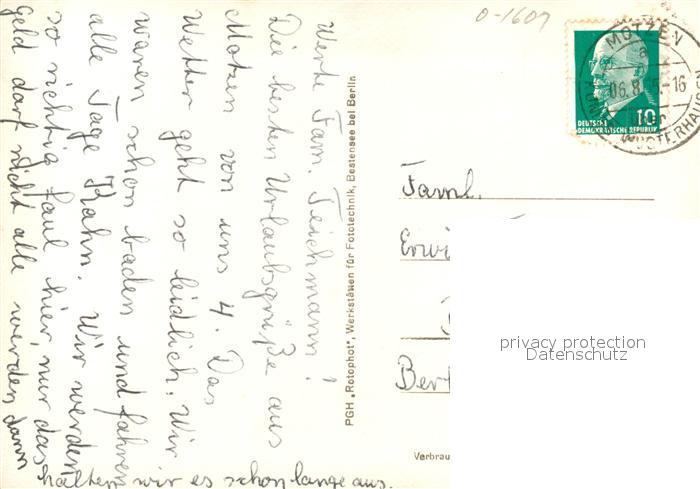 Werte Fam. Teichmann!
Die besten Urlaubsgrüße aus
Motzen von uns 4. Das
Wetter geht so leidlich. Wir
waren schon baden und fahren
alle Tage Kahn. Wir werden
so richtig faul hier, nur das
Geld darf nicht alle werden dann
halten wir es schon lange aus.
PGH „Rotophot", Werkstätten für Fototechnik, Bestensee bei Berlin
0-1607
MOTZEN
a
06.8. 5.-16
über
KÖNIGS WUSTERHAUSEN
10
DEUTSCHE
DEMOKRATISCHE REPUBLIK
Faml.
Erwi
Ber
Verbrau
privacy protection
Datenschutz